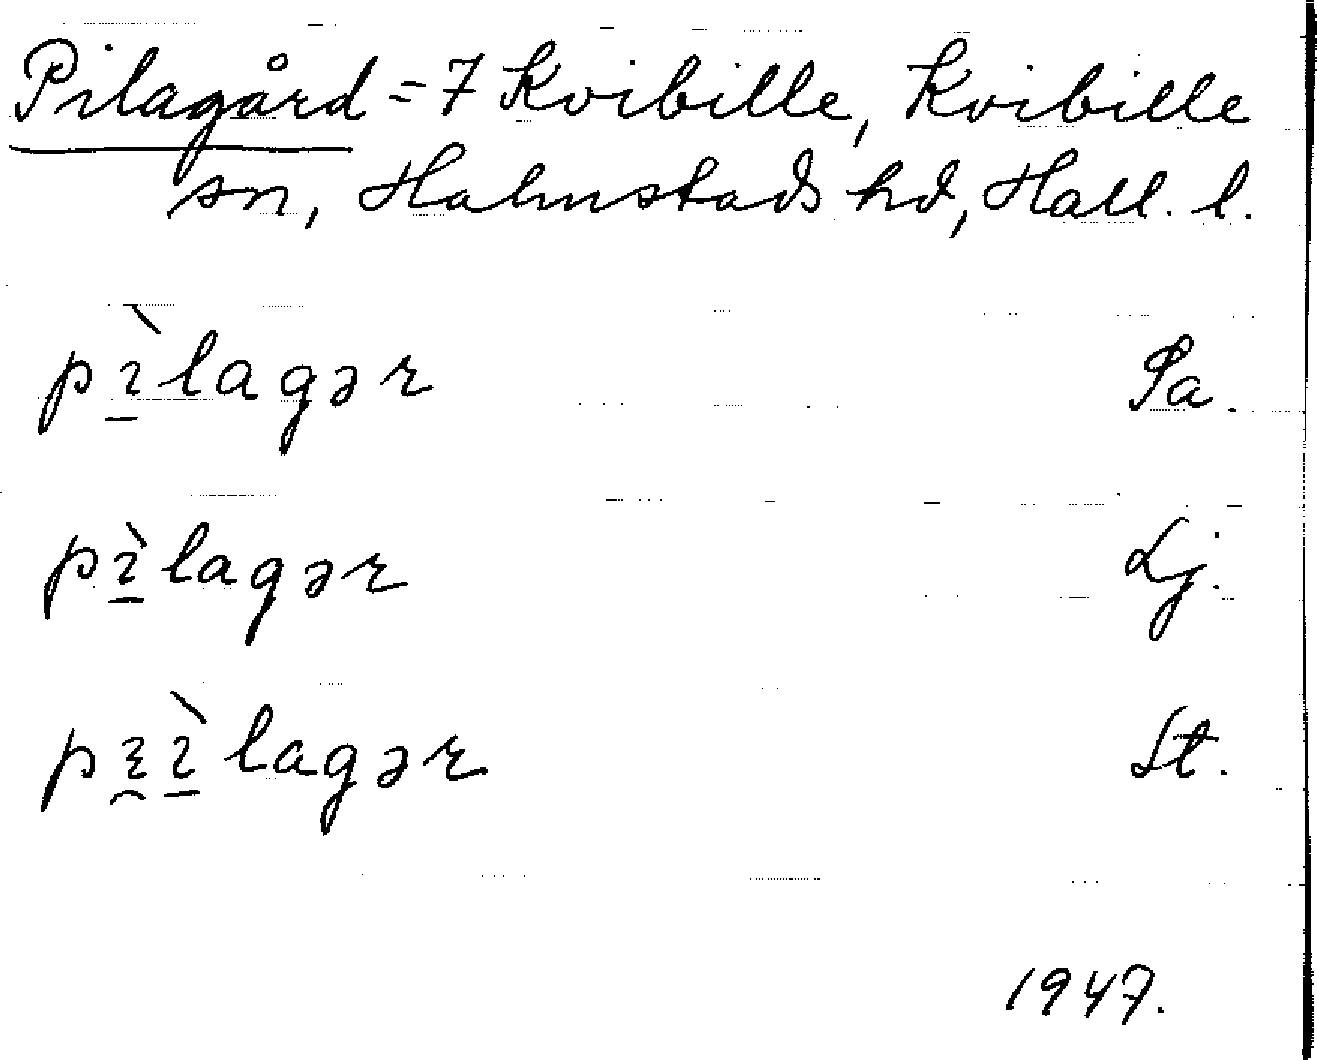 Pilagård = 7 Kvibille, Kvibille
sn, Halmstads hd, Hall. l.
pɪ̠̀lagər Pa.
pɪ̠̀lagər Lj.
St.
1947.